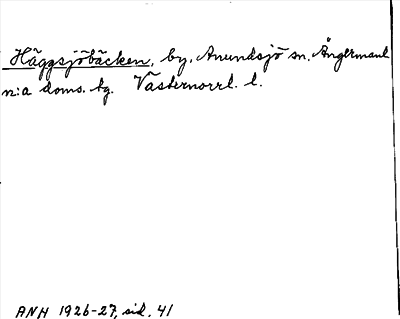 Häggsjöbäcken, by, Anundsjö sn. Ångermanl
n:a doms. tg. Västernorrl. l.
ANH 1926-27, sid. 41